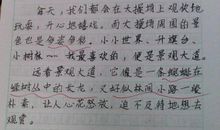 每天，我们都会在大操场上欢快地
玩耍，开心地嬉戏。而大操场周围的景
色也是多姿多彩。小小世界、升旗台、
小树林……我最喜欢的，便是景观大道。
远看景观大道，它像是一条蜿蜒在
绿树丛中的大龙，又好似休闲小路一般
朴素，让人心花怒放，迫不及待地想去
观赏。